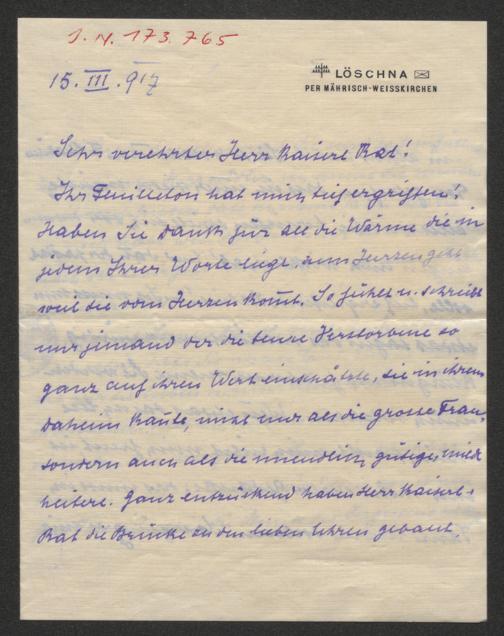 J. N. 173.765
15. III. 917
LÖSCHNA
PER MÄHRISCH-WEISSKIRCHEN
Sehr verehrter Herr Kaiserl Rat!
Ihr Feuilleton hat mich tief ergriffen!
Haben Sie Dank für all die Wärme die in
jedem Ihrer Worte liegt zum Herzen geht
weil sie vom Herzen kom̄t. So fühlt u. schreibt
nur jemand der die teure Verstorbene so
ganz auf ihren Wert einschätzte, sie in ihrem
Daheim kañte, nicht nur als die grosse Frau
sondern auch als die unendlich gütige, milde
heitere. Ganz entzückend haben Herr Kaiserl.
Rat die Brücke zu den lieben Uhren gebaut,